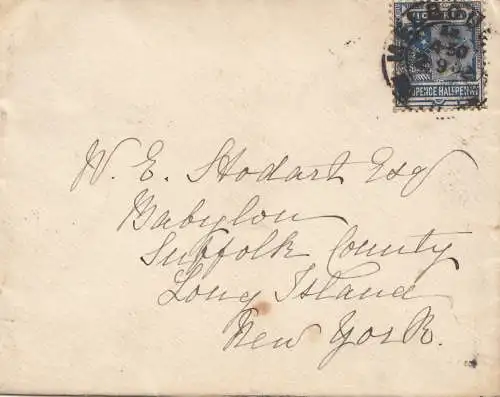 VICTORIA
4-30
9 92
TWOPENCE HALFPENNY
W. E. Stodart Esq
Babylon
Suffolk County
Long Island
New York.